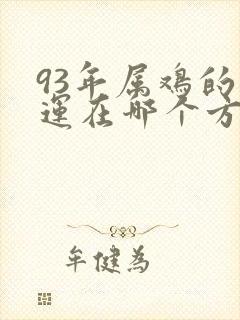 93年属鸡的
运在哪个方
牟健为